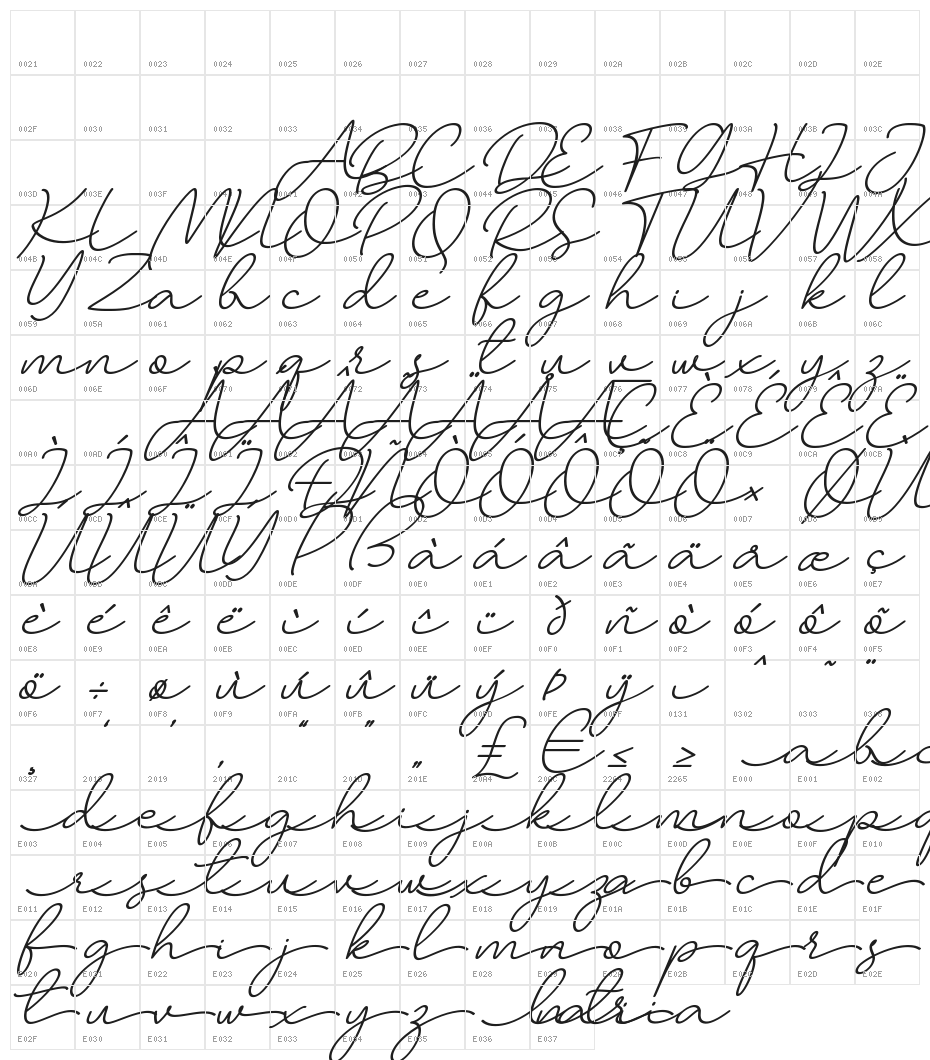 0021 0022 0023 0024 0025 0026 0027 0028 0029 002A 002B 002C 002D 002E
002F 0030 0031 0032 0033 0034 0035 0036 0037 0038 0039 003A 003B 003C
A B C D E F G H I J
003D 003E 003F 0040 0041 0042 0043 0044 0045 0046 0047 0048 0049 004A
K L M N O P Q R S T U V W X
004B 004C 004D 004E 004F 0050 0051 0052 0053 0054 0055 0056 0057 0058
Y Z a b c d e f g h i j k l
0059 005A 0061 0062 0063 0064 0065 0066 0067 0068 0069 006A 006B 006C
m n o p q r s t u v w x y z
006D 006E 006F 0070 0071 0072 0073 0074 0075 0076 0077 0078 0079 007A
À Á Â Ã Ä Å Ç È É Ê Ë
00A0 00AD 00C0 00C1 00C2 00C3 00C4 00C5 00C6 00C7 00C8 00C9 00CA 00CB
Ì Í Î Ï Ð Ñ Ò Ó Ô Õ Ö × Ø Ù
00CC 00CD 00CE 00CF 00D0 00D1 00D2 00D3 00D4 00D5 00D6 00D7 00D8 00D9
Ú Û Ü Ý Þ ß à á â ã ä å æ ç
00DA 00DB 00DC 00DD 00DE 00DF 00E0 00E1 00E2 00E3 00E4 00E5 00E6 00E7
è é ê ë ì í î ï ð ñ ò ó ô õ
00E8 00E9 00EA 00EB 00EC 00ED 00EE 00EF 00F0 00F1 00F2 00F3 00F4 00F5
ö ÷ ø ù ú û ü ý þ ÿ ı ˆ ˜ ¨
00F6 00F7 00F8 00F9 00FA 00FB 00FC 00FD 00FE 00FF 0131 0302 0303 0308
¸ ‘ ’ ‚ “ ” „ ₤ € ≤ ≥ a b c
0327 2018 2019 201A 201C 201D 201E 20A4 20AC 2264 2265 E000 E001 E002
d e f g h i j k l m n o p q
E003 E004 E005 E006 E007 E008 E009 E00A E00B E00C E00D E00E E00F E010
r s t u v w x y z a b c d e
E011 E012 E013 E014 E015 E016 E017 E018 E019 E01A E01B E01C E01E E01F
f g h i j k l m n o p q r s
E020 E021 E022 E023 E024 E025 E026 E028 E029 E02A E02B E02C E02D E02E
t u v w x y z
E02F E030 E031 E032 E033 E034 E035 E036 E037